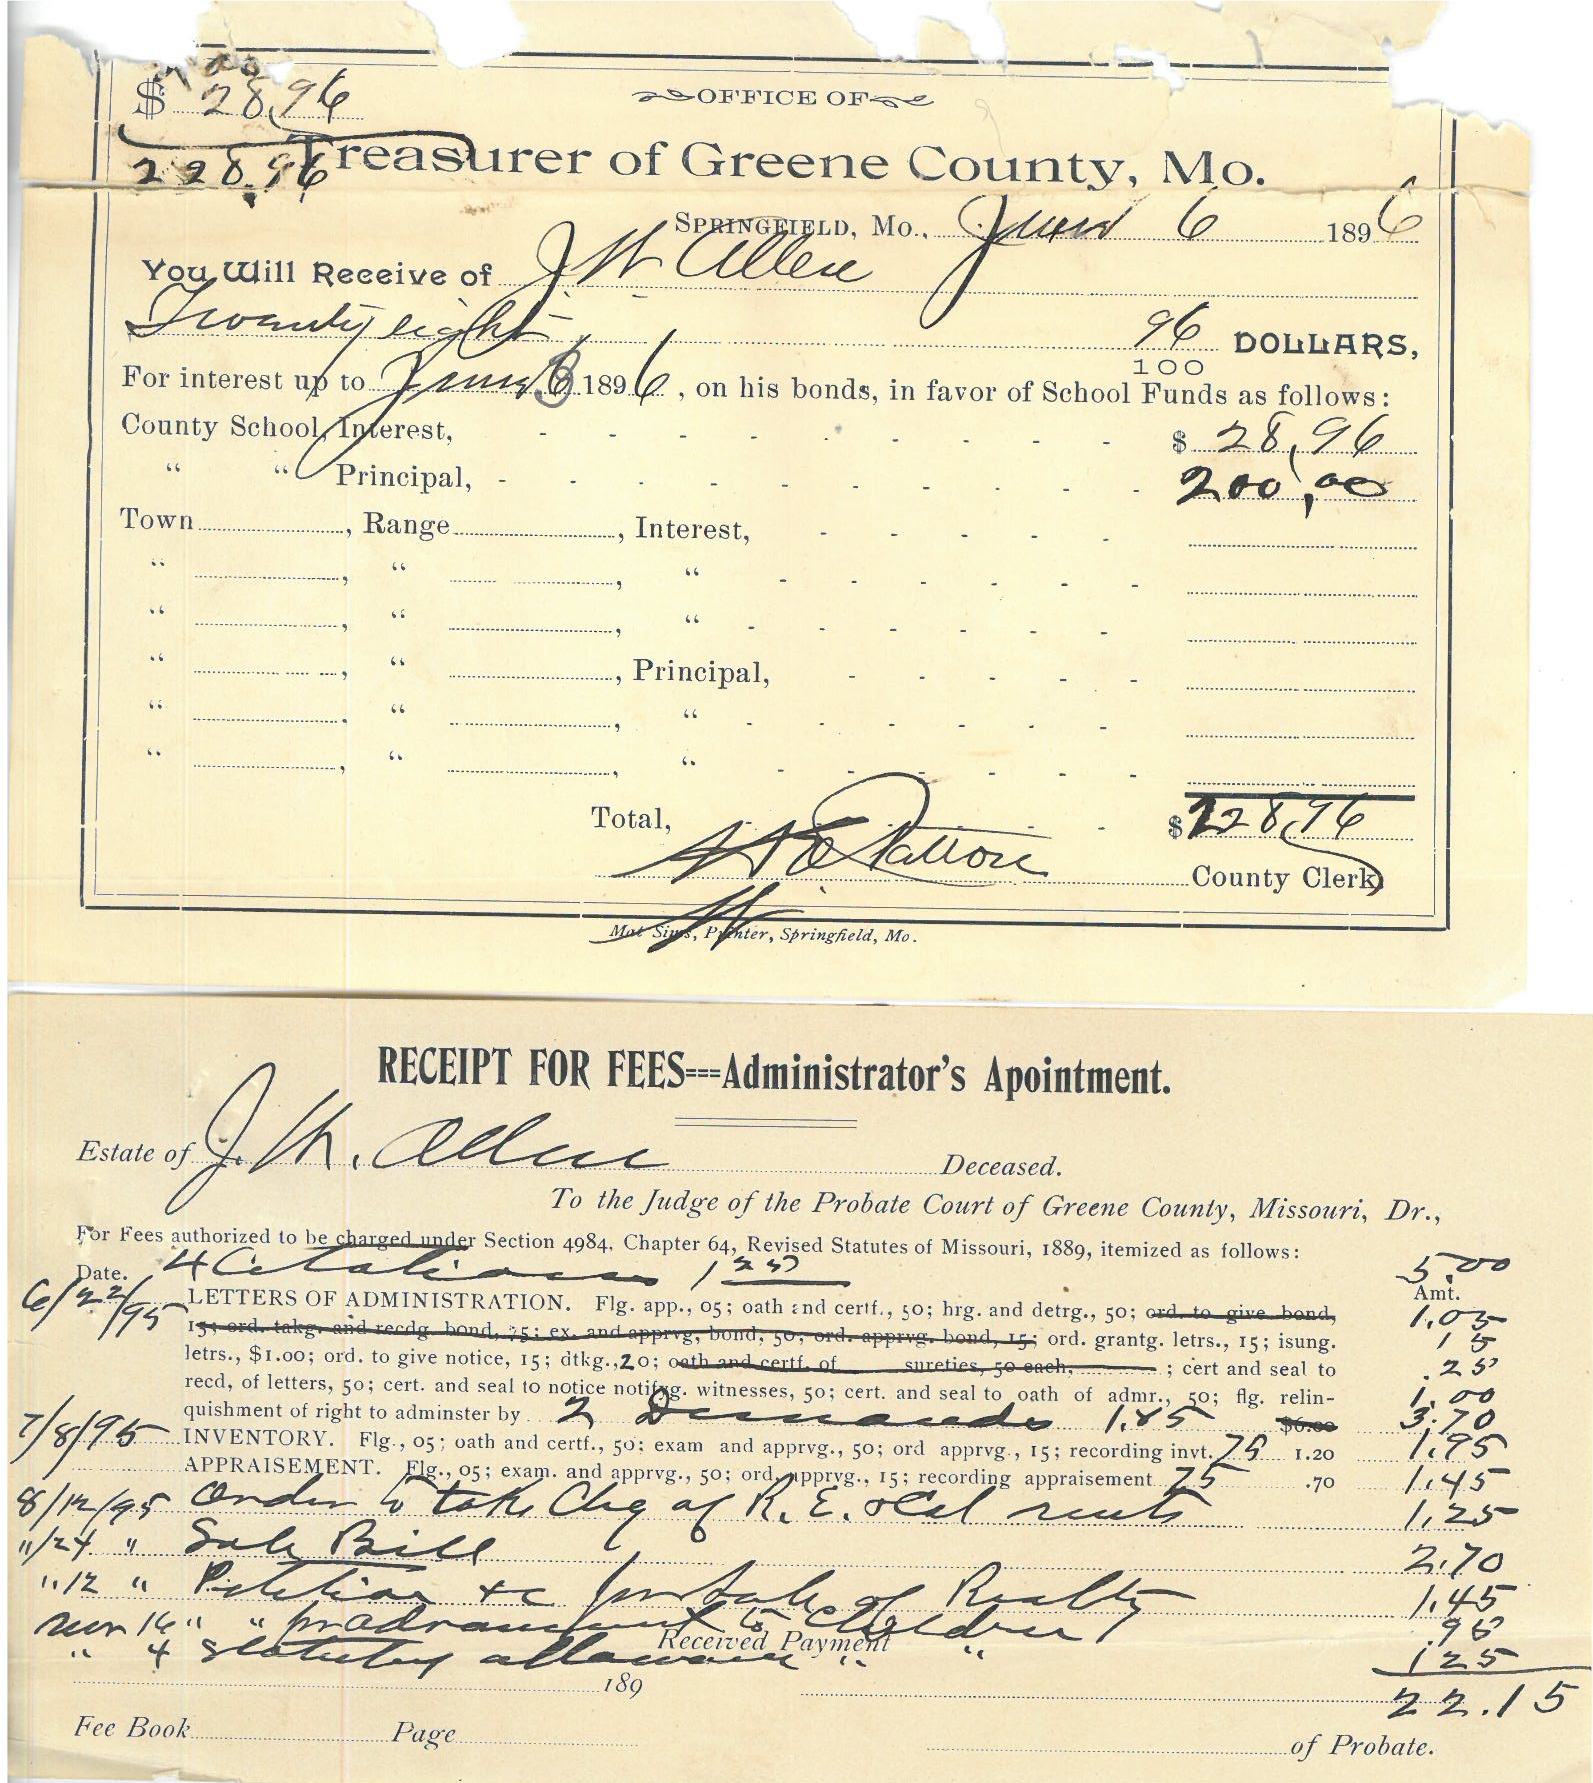 $ 28,96
228.96
OFFICE OF
Treasurer of Greene County, Mo.
Springfield, Mo., June 6 1896
You Will Receive of J W Allen
Twenty eight 96/100 DOLLARS,
For interest up to June 1896, on his bonds, in favor of School Funds as follows:
County School, Interest, - - - - - - - - - $ 28,96
" " Principal, - - - - - - - - - - 200,00
Town , Range , Interest, - - - - -
" , " , " - - - - - -
" , " , " - - - - - -
" , " , Principal, - - - - -
" , " , " - - - - - -
" , " , " - - - - - -
Total, $ 228,96
Patton County Clerk
Mat Sims, Printer, Springfield, Mo.
RECEIPT FOR FEES===Administrator's Apointment.
Estate of J. W. Allen Deceased.
To the Judge of the Probate Court of Greene County, Missouri, Dr.,
For Fees authorized to be charged under Section 4984, Chapter 64, Revised Statutes of Missouri, 1889, itemized as follows:
Date. 4 Citations 5.00
Amt.
6/22/95 LETTERS OF ADMINISTRATION. Flg. app., 05; oath and certf., 50; hrg. and detrg., 50; ord. to give bond, 1.05
15; ord. takg. and recdg. bond, 75; ex. and apprvg, bond, 50; ord. apprvg. bond, 15; ord. grantg. letrs., 15; isung. 15
letrs., $1.00; ord. to give notice, 15; dtkg., 20; oath and certf. of sureties, 50 each, ; cert and seal to .25
recd, of letters, 50; cert. and seal to notice notifyg. witnesses, 50; cert. and seal to oath of admr., 50; flg. relin- 1.00
quishment of right to adminster by 2 Demands 1.85 $6.00 3.70
7/8/95 INVENTORY. Flg., 05; oath and certf., 50; exam and apprvg., 50; ord apprvg., 15; recording invt. 75 1.20 1.95
APPRAISEMENT. Flg., 05; exam. and apprvg., 50; ord. apprvg., 15; recording appraisement 75 .70 1.45
8/12/95 Order to take Chg of R. E. & Col rents 1.25
"/24 " Sale Bill 2.70
"12 " Petition &c for Sale of Realty 1.45
Nov 16 " " Children .95
" 4 Statutory allowance " " 125
Received Payment
189 22.15
Fee Book Page of Probate.